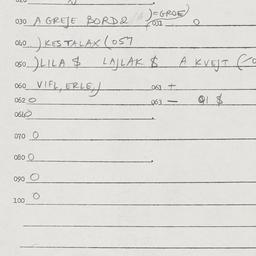 030 A GREJE BORDQ )=GROE) 032 O
040 ) KESTALAX ( 057
050 ) LILA $ LAJLAK $ A KVEJT (
060 VIFL, ERLE, ) 061 +
062 O 063 — 91 $
064 O
070 O
080 O
090 O
100 O